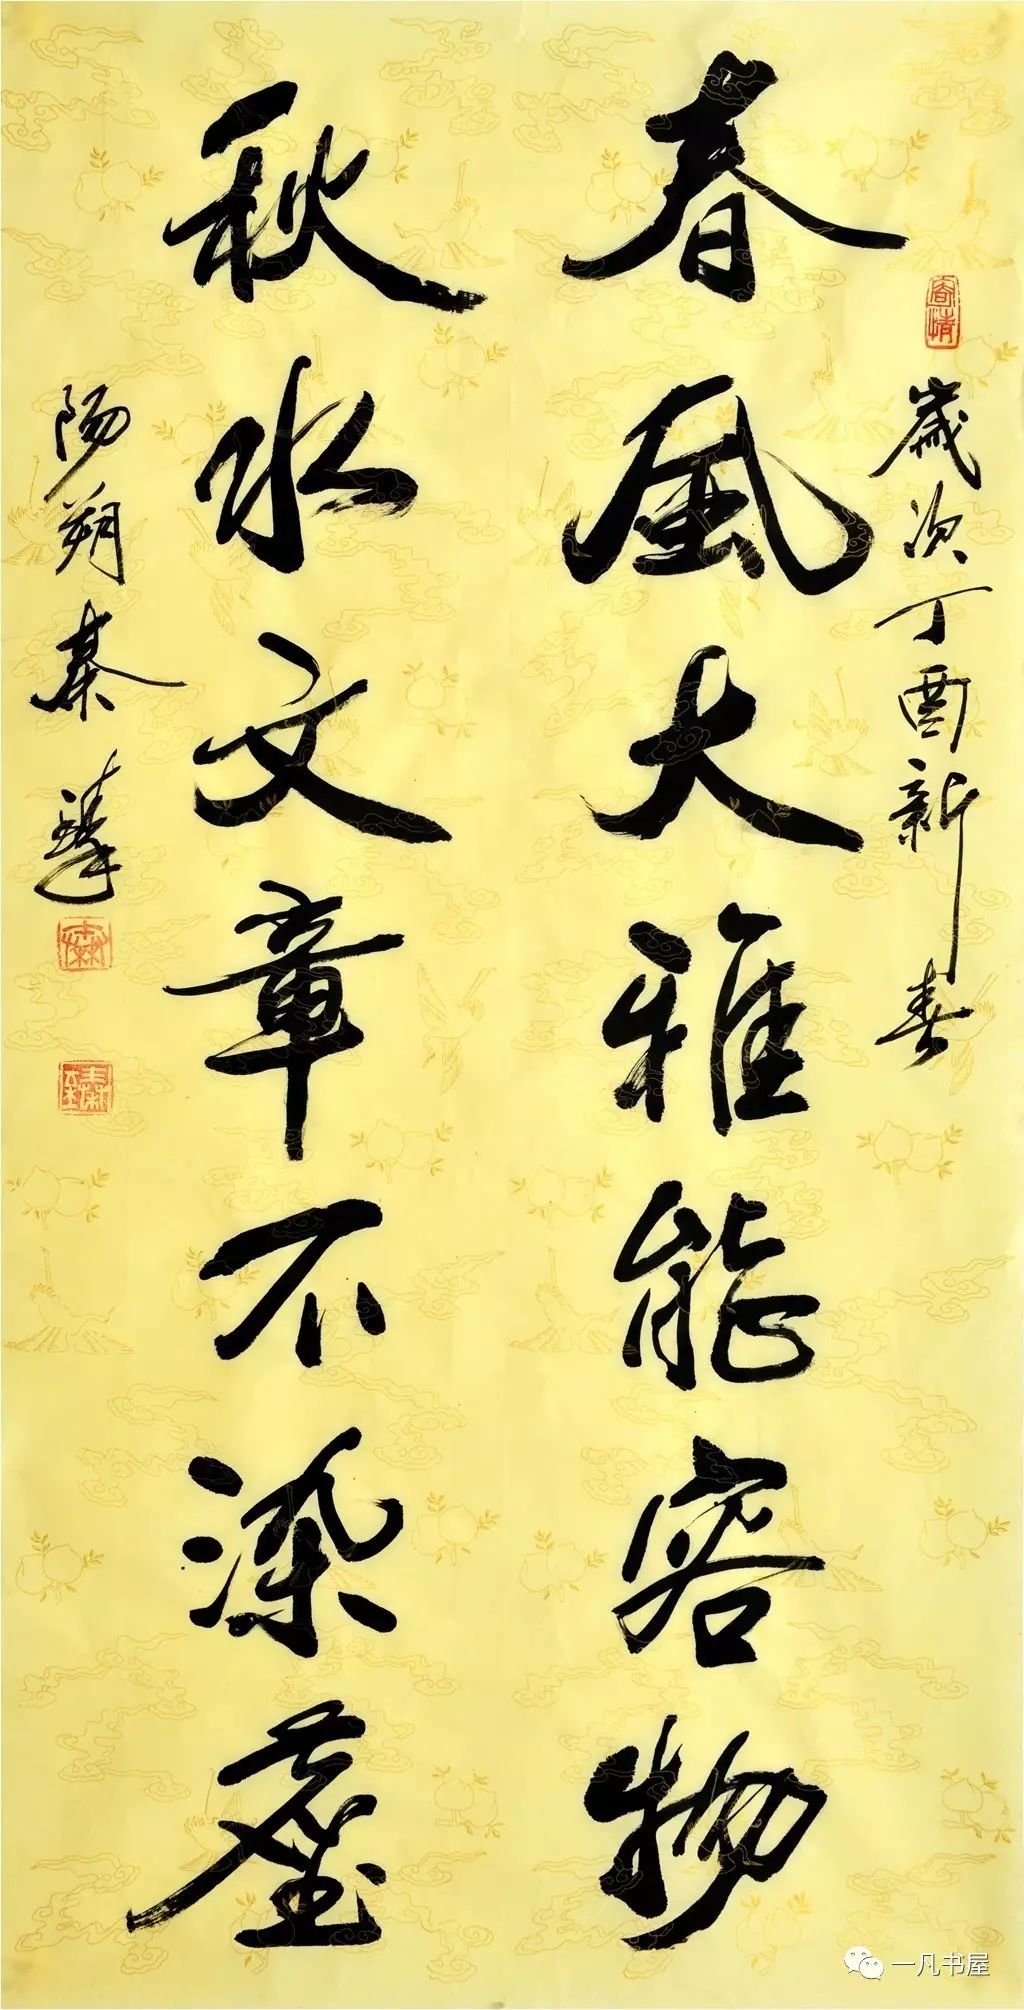 歲次丁酉新春
春風大雅能容物
秋水文章不染塵
陽朔秦臻
一凡书屋